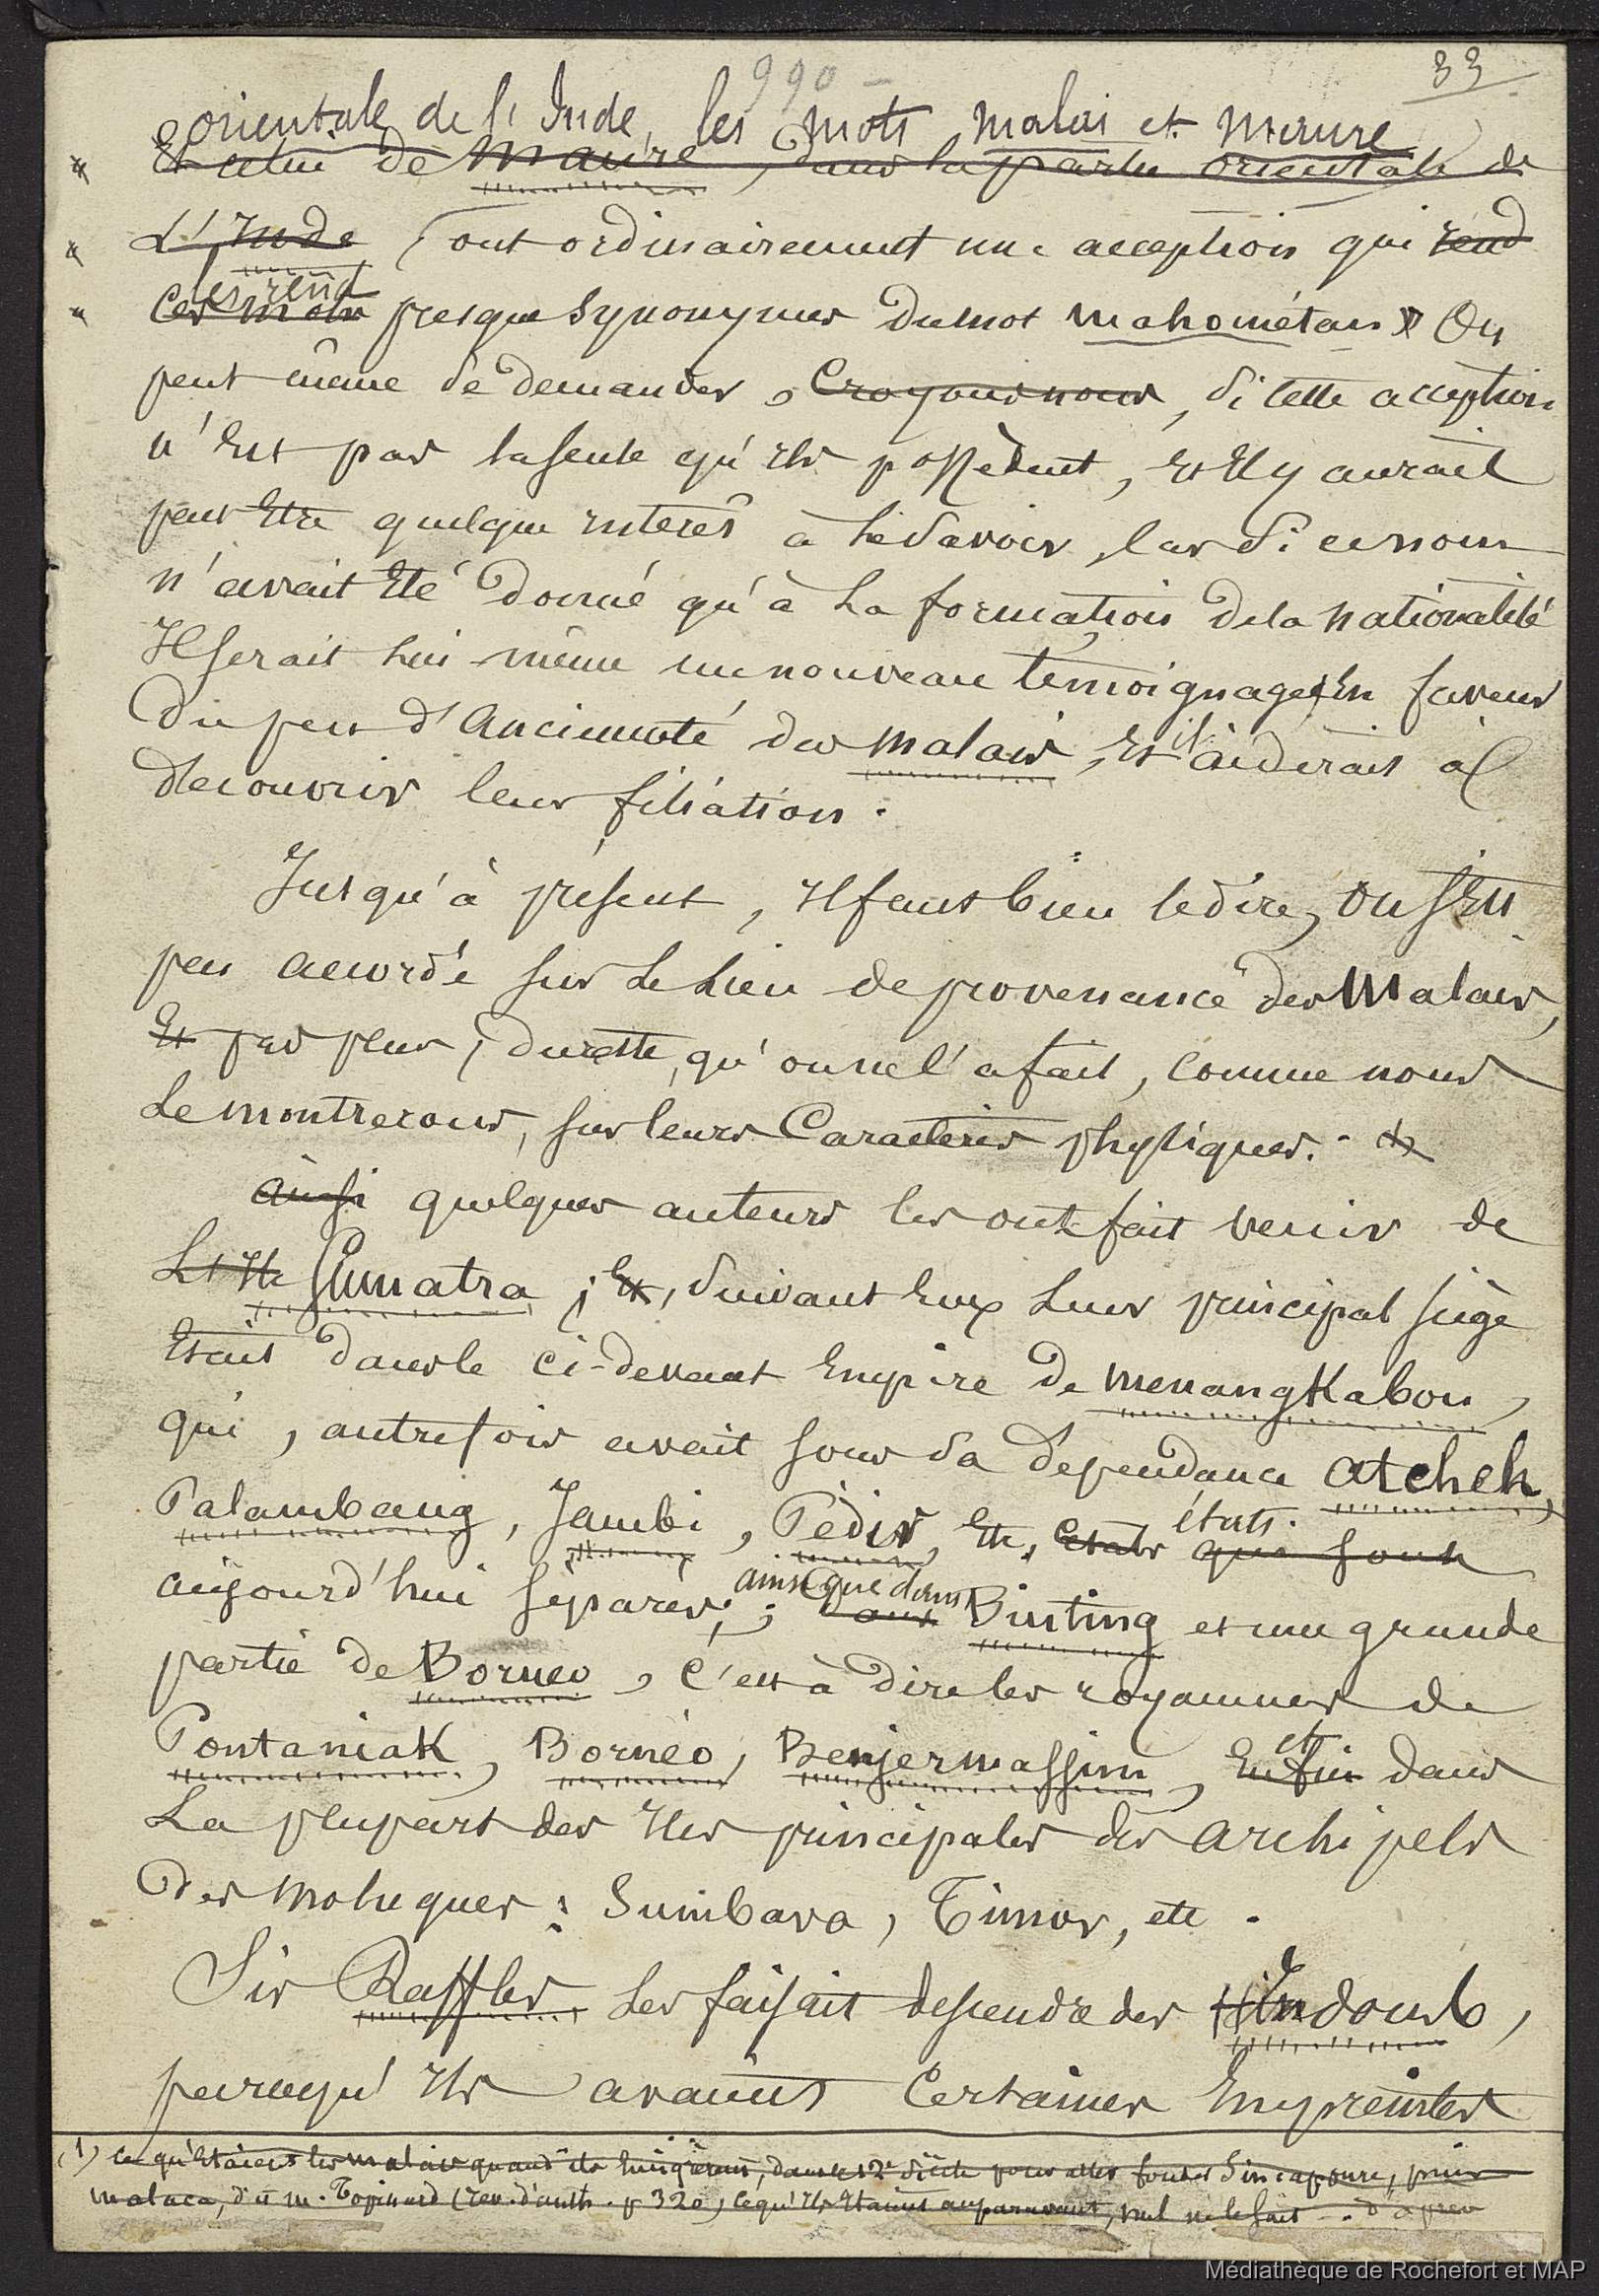 990 —
33
orientale de l'Inde, les mots malais et maure
Et celui de Maure, dans la partie orientale de
L'Inde, ont ordinairement une acception qui rend
les rend
Ces mots presque synonymes du mot mahométan. On
peut même se demander, Croyons nous, si cette acception
n'Est pas la seule qu'Ils possèdent, Et Il y aurait
peut Etre quelque intérêt à le savoir, car si ce nom
n'avait Eté donné qu'à la formation de la nationalité
Il serait lui-même un nouveau témoignage En faveur
du peu d'Ancienneté des malais, Et il aiderait à
découvrir leur filiation.
Jusqu'à présent, Il faut bien le dire, on s'En
peu accordé sur le lieu de provenance des Malais,
Et pas plus, du reste, qu'on ne l'a fait, comme nous
Le montrerons, sur leurs Caractères physiques.
ainsi quelques auteurs les ont fait venir de
L'Ile Sumatra; Et, suivant Eux leur principal siège
Etait dans le ci-devant Empire de menangKabou,
qui, autrefois avait sous sa dépendance atcheh,
Palambang, Jambi, Pédir, Etc. Etats qui sont
états.
aujourd'hui séparés; dans Binting et une grande
ainsi que dans
partie de Borneo, c'est à dire les royaumes de
PontaniaK, Bornéo, Benjermassim, Enfin dans
et
La plupart des Iles principales des archipels
des moluques: Sumbava, Timor, etc.
Sir Raffles les faisait descendre des Hindous,
parcequ'Ils avaient Certaines Empreintes
(1) ce qu'Etaient les malais quand ils Emigrèrent, dans le 12e siècle pour aller fonder Sincapoure, puis
malaca, dit M. Topinard (rev. d'anth. p 320, ce qu'Ils Etaient auparavant, nul ne le sait. d'après
Médiathèque de Rochefort et MAP